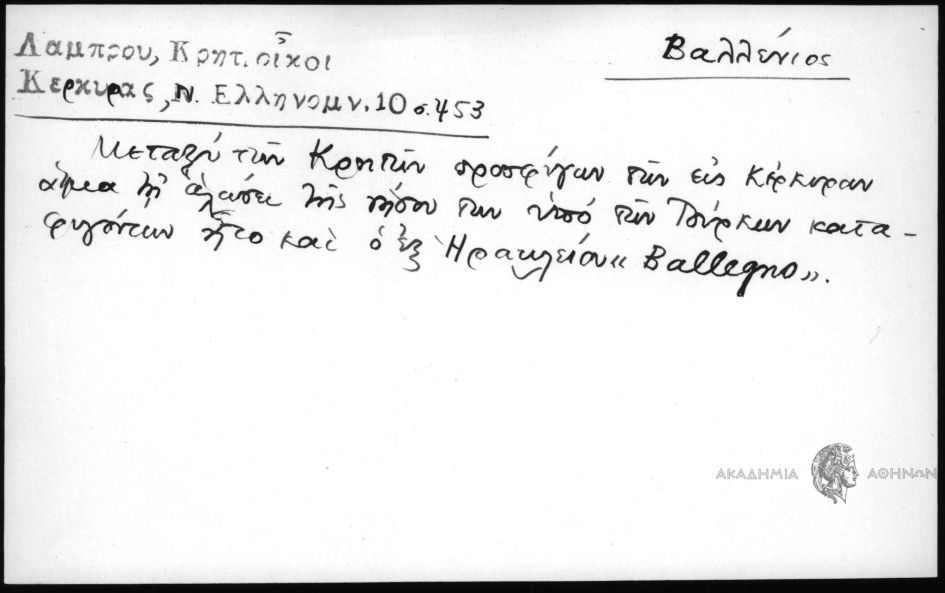 Λαμπρου, Κρητ. οἶκοι
Κερκυρας, Ν. Ελληνομν. 10 σ. 453
Βαλλένιος
Μεταξύ τῶν Κρητῶν προσφύγων τῶν εἰς Κέρκυραν
ἅμα τῇ ἁλώσει τῆς νήσου των ὑπό τῶν Τούρκων κατα-
φυγόντων ἦτο καὶ ὁ ἐξ Ἡρακλείου « Ballegno ».
ΑΚΑΔΗΜΙΑ ΑΘΗΝΩΝ